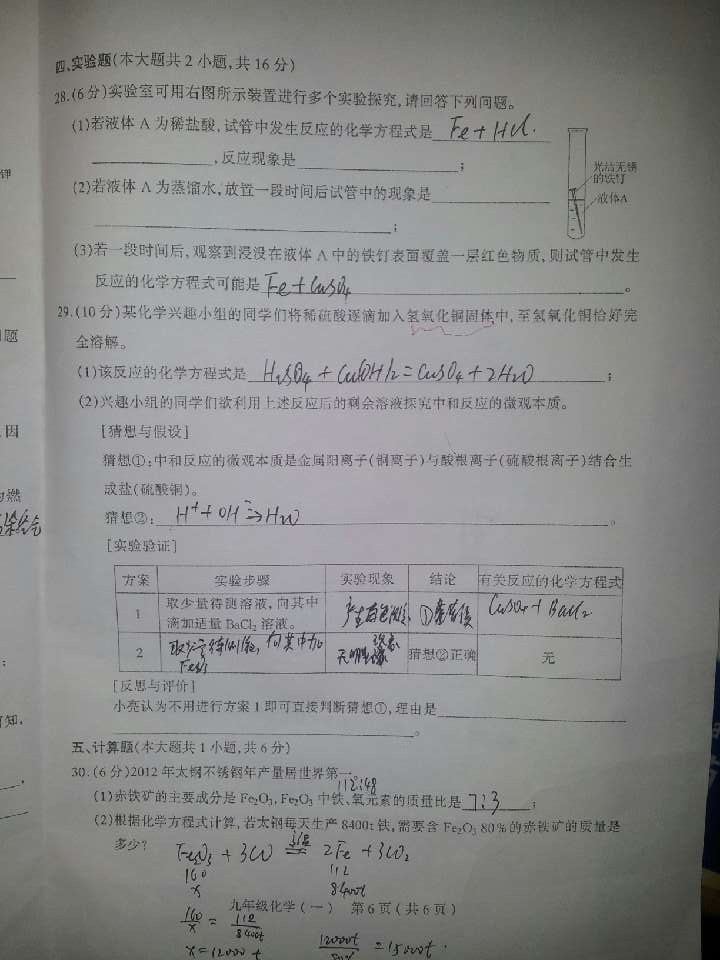 四、实验题(本大题共2小题,共16分)
28.(6分)实验室可用右图所示装置进行多个实验探究,请回答下列问题。
(1)若液体A为稀盐酸,试管中发生反应的化学方程式是 Fe+HCl.
,反应现象是 ;
光洁无锈
的铁钉
液体A
(2)若液体A为蒸馏水,放置一段时间后试管中的现象是
;
(3)若一段时间后,观察到浸没在液体A中的铁钉表面覆盖一层红色物质,则试管中发生
反应的化学方程式可能是 Fe+CuSO4 。
29.(10分)某化学兴趣小组的同学们将稀硫酸逐滴加入氢氧化铜固体中,至氢氧化铜恰好完
全溶解。
(1)该反应的化学方程式是 H2SO4+Cu(OH)2=CuSO4+2H2O ;
(2)兴趣小组的同学们欲利用上述反应后的剩余溶液探究中和反应的微观本质。
[猜想与假设]
猜想①:中和反应的微观本质是金属阳离子(铜离子)与酸根离子(硫酸根离子)结合生
成盐(硫酸铜)。
猜想②: H⁺+OH⁻⇒H2O 。
[实验验证]
方案 实验步骤 实验现象 结论 有关反应的化学方程式
1 取少量待测溶液,向其中 产生白色沉淀 ① CuSO4+BaCl2
滴加适量BaCl2溶液。
2 取少量待测液,向其中加 无明显现象 猜想②正确 无
[反思与评价]
小亮认为不用进行方案1即可直接判断猜想①,理由是
。
五、计算题(本大题共1小题,共6分)
30.(6分)2012年太钢不锈钢年产量居世界第一。
112:48
(1)赤铁矿的主要成分是Fe2O3,Fe2O3中铁、氧元素的质量比是 7:3 ;
(2)根据化学方程式计算,若太钢每天生产8400t铁,需要含Fe2O3 80%的赤铁矿的质量是
多少?
Fe2O3+3CO 高温 2Fe+3CO2
160 112
x 8400t
九年级化学(一) 第6页(共6页)
160/x=112/8400t
x=12000t 12000t/80%=15000t.